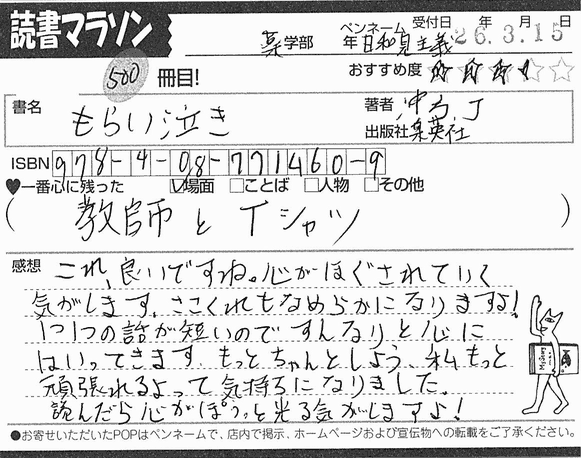 読書マラソン
薬学部 年 ペンネーム 日和見主義 受付日 26.3.15 年 月 日
500 冊目! おすすめ度
書名 もらい泣き 著者 冲方丁
出版社 集英社
ISBN 978-4-08-771460-9
♥一番心に残った □場面 □ことば □人物 □その他
( 教師とTシャツ )
感想 これ、良いですね。心がほぐされていく
気がします。ささくれもなめらかになりますよ!
1つ1つの話が短いのですんなりと心に
はいってきます。もっとちゃんとしよう、私もっと
頑張れるよって気持ちになりました。
読んだら心がぽうっと光る気がしますよ!
●お寄せいただいたPOPはペンネームで、店内で掲示、ホームページおよび宣伝物への転載をご了承ください。